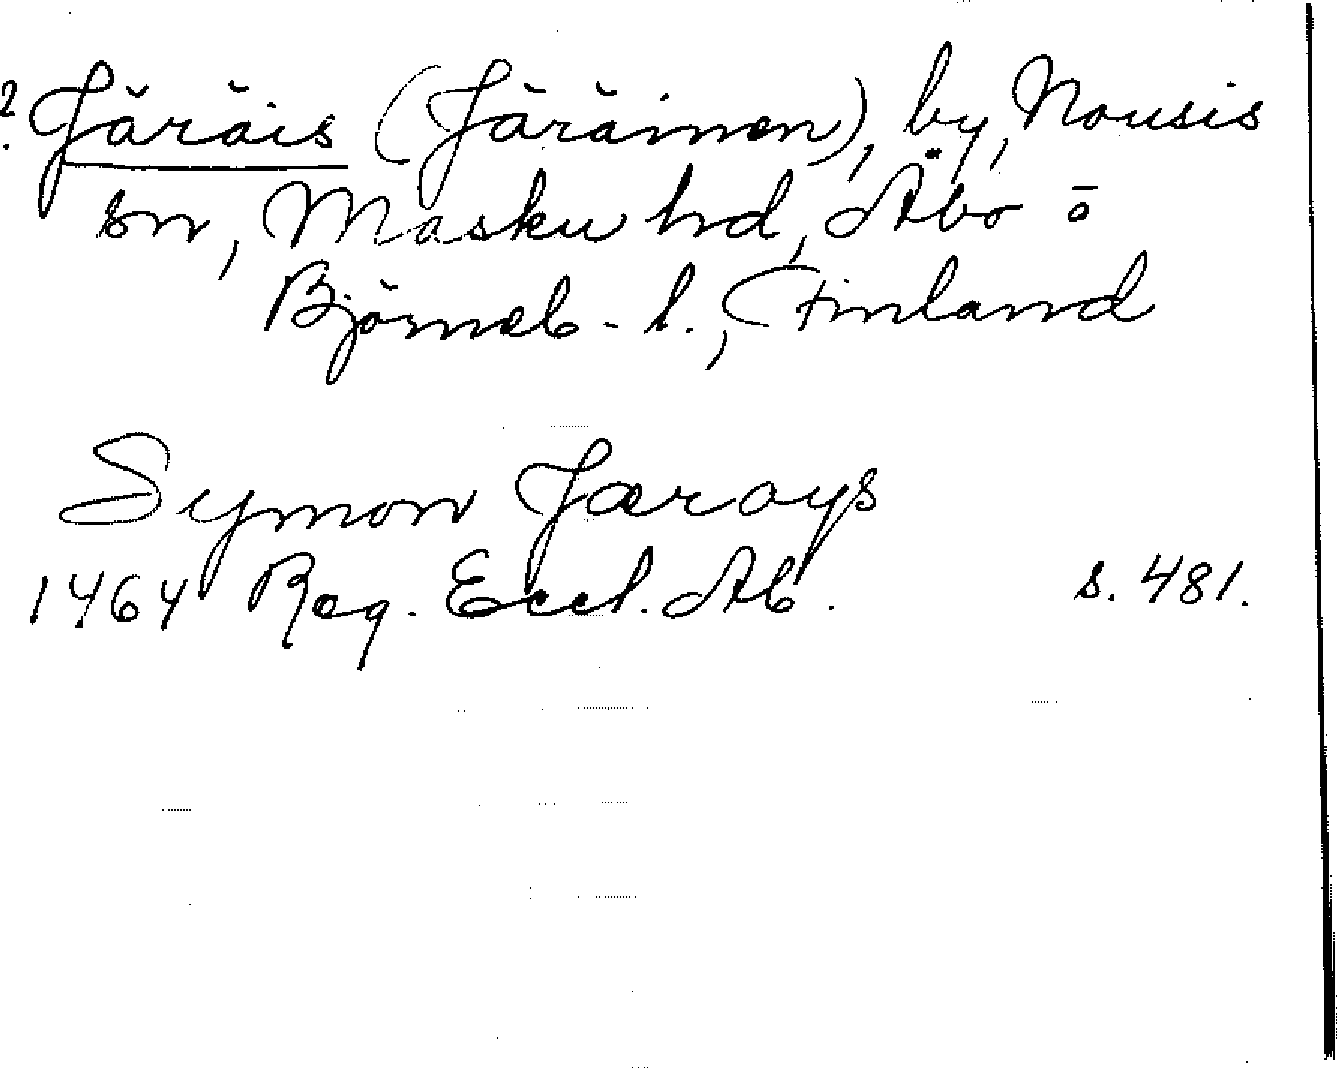 ? Järäis (Järäinen), by, Nousis
sn, Masku hd, Åbo o
Björneb. l., Finland
Symon Jærays
1464 Reg. Eccl. Ab. s. 481.